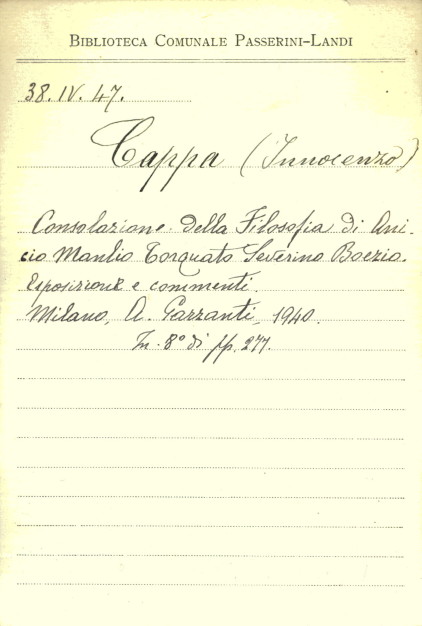 BIBLIOTECA COMUNALE PASSERINI-LANDI
38. IV. 47.
Cappa (Innocenzo)
Consolazione della Filosofia di Ani-
cio Manlio Torquato Severino Boezio.
Esposizione e commenti.
Milano, A. Garzanti, 1940.
In-8° di pp. 277.